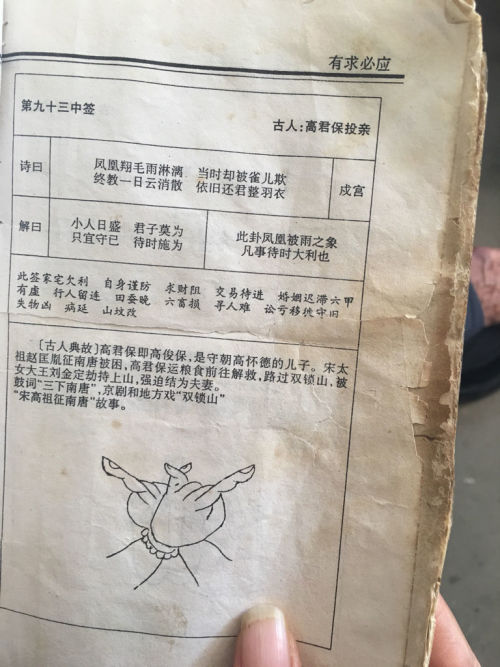 有求必应
第九十三中签
古人：高君保投亲
诗曰
凤凰翔毛雨淋漓 当时却被雀儿欺
终教一日云消散 依旧还君整羽衣
戍宫
解曰
小人日盛 君子莫为
只宜守已 待时施为
此卦凤凰被雨之象
凡事待时大利也
此签家宅欠利 自身谨防 求财阻 交易待进 婚姻迟滞六甲
有虚 行人留连 田蚕晚 六畜损 寻人难 讼亏移徙守旧
失物凶 病延 山坟改
〔古人典故〕高君保即高俊保，是守朝高怀德的儿子。宋太
祖赵匡胤征南唐被困，高君保运粮食前往解救，路过双锁山，被
女大王刘金定劫持上山，强迫结为夫妻。
鼓词“三下南唐”，京剧和地方戏“双锁山”
“宋高祖征南唐”故事。